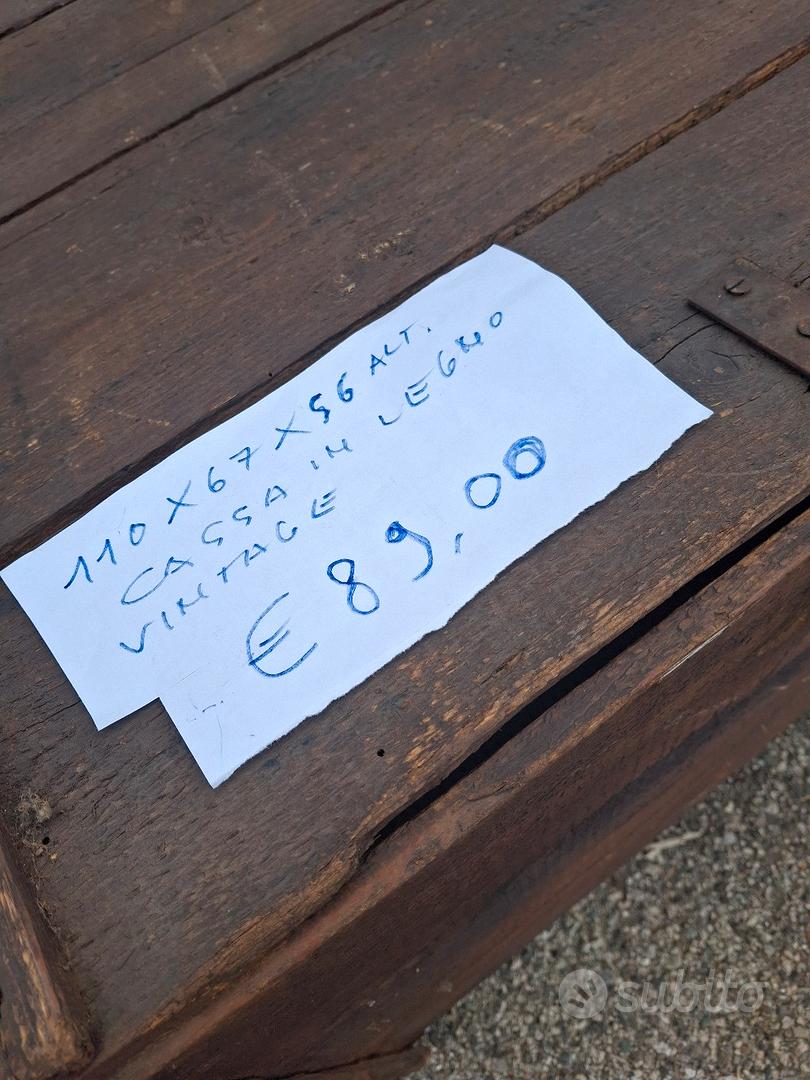 110 X 67 X 56 ALT.
CASSA IN LEGNO
VINTAGE
€ 89,00
subito